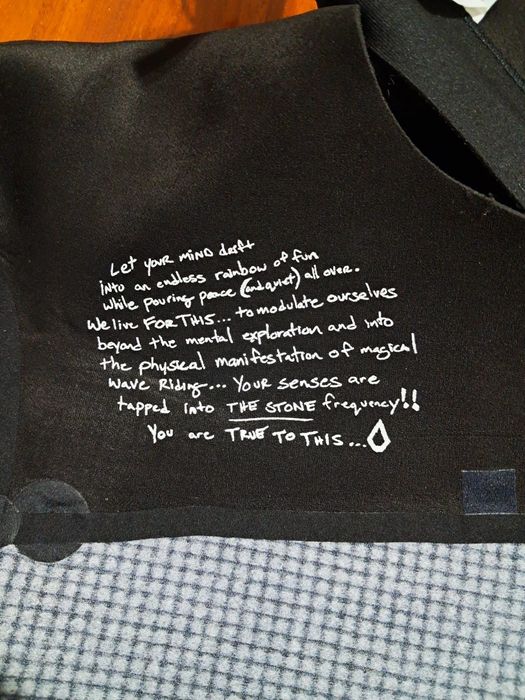 Let your mind drift
into an endless rainbow of fun
while pouring peace (and quiet) all over.
We live FOR THIS... to modulate ourselves
beyond the mental exploration and into
the physical manifestation of magical
wave Riding... Your senses are
tapped into THE STONE frequency!!
You are TRUE TO THIS...